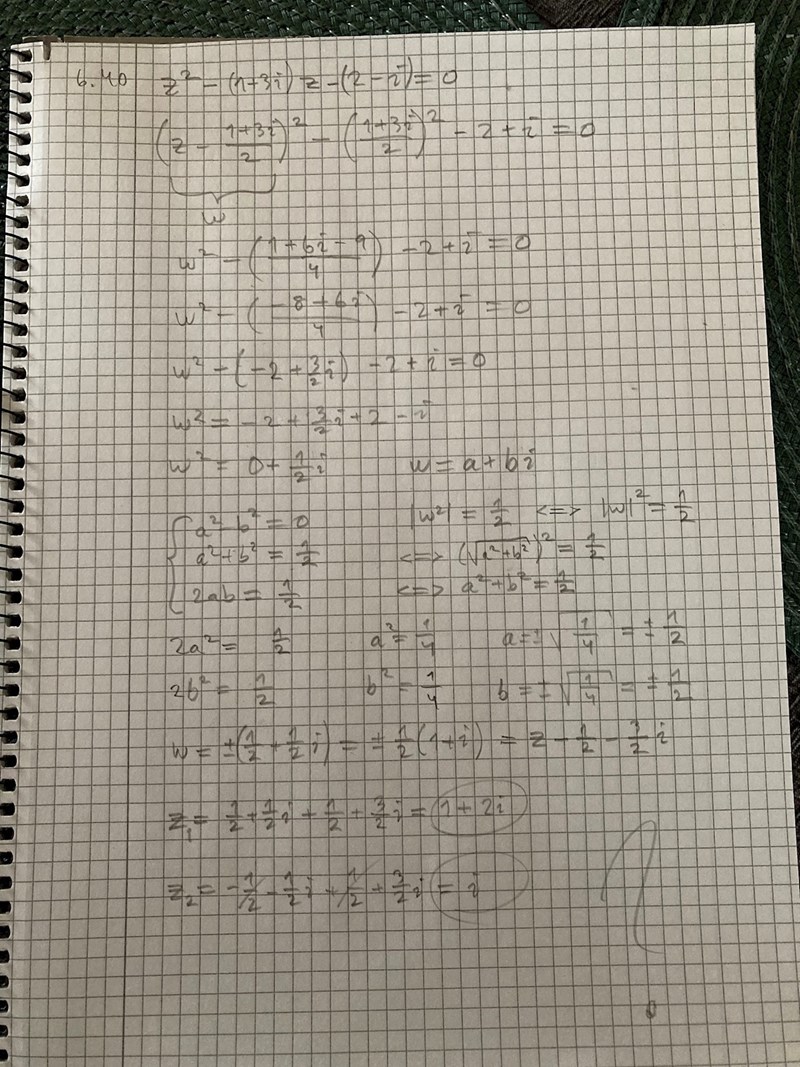 6.40 z² - (1+3i) z - (2 - i) = 0
(z - (1+3i)/2)² - ((1+3i)/2)² - 2 + i = 0
w
w² - ((1+6i-9)/4) - 2 + i = 0
w² - ((-8+6i)/4) - 2 + i = 0
w² - (-2 + 3/2 i) - 2 + i = 0
w² = -2 + 3/2 i + 2 - i
w² = 0 + 1/2 i w = a + bi
{ a² - b² = 0 |w²| = 1/2 <=> |w|² = 1/2
a² + b² = 1/2 <=> (√(a²+b²))² = 1/2
2ab = 1/2 <=> a² + b² = 1/2
2a² = 1/2 a² = 1/4 a = ±√(1/4) = ± 1/2
2b² = 1/2 b² = 1/4 b = ±√(1/4) = ± 1/2
w = ±(1/2 + 1/2 i) = ± 1/2 (1+i) = z - 1/2 - 3/2 i
z₁ = 1/2 + 1/2 i + 1/2 + 3/2 i = 1 + 2i
z₂ = -1/2 - 1/2 i + 1/2 + 3/2 i = i